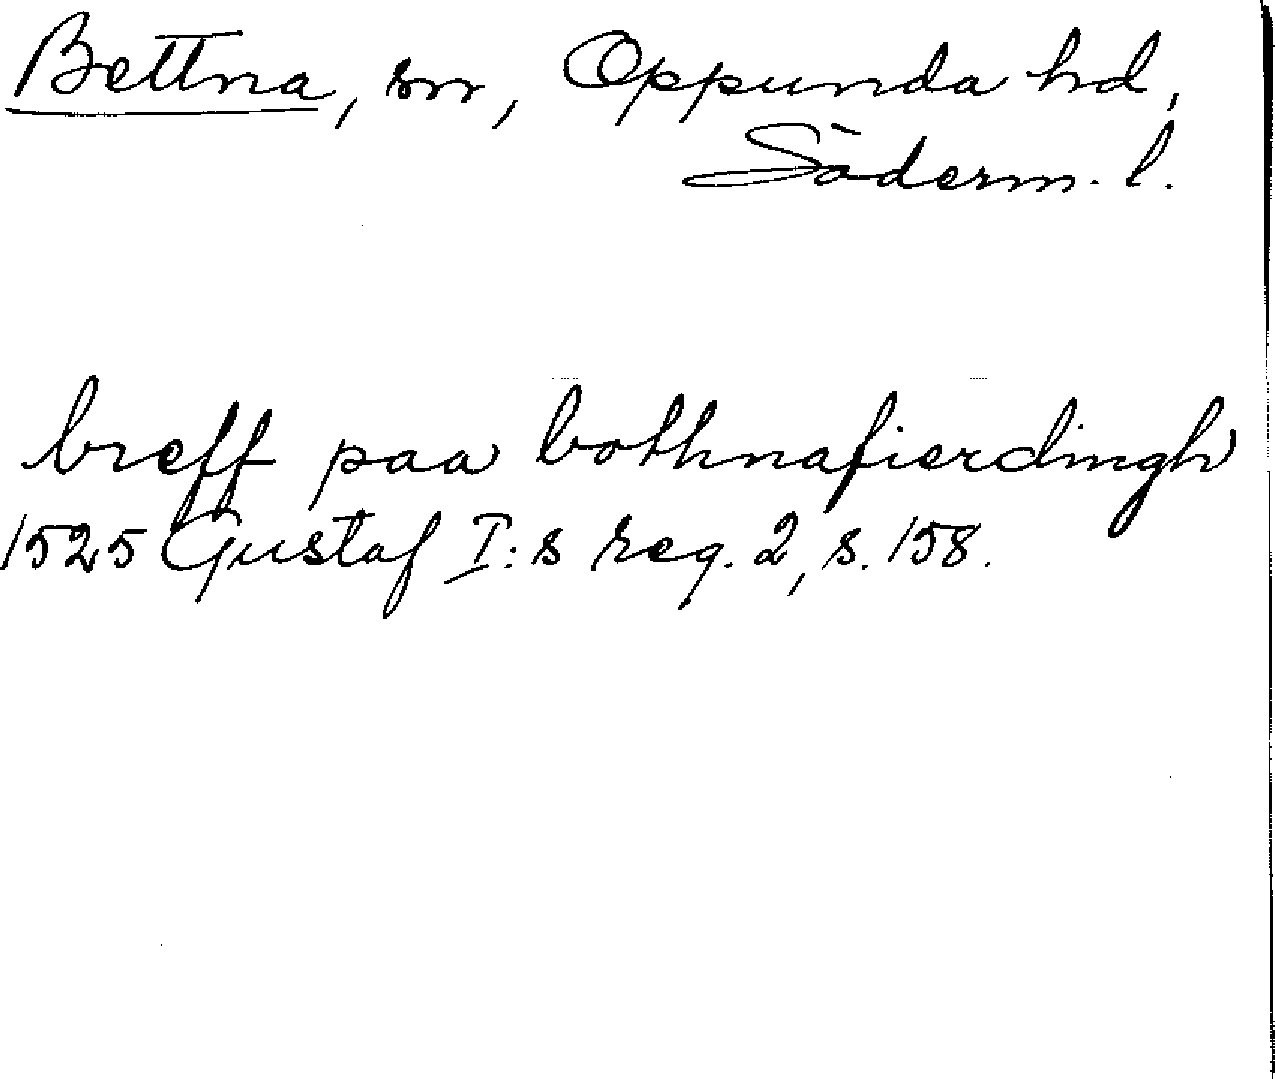 Bettna, sn, Oppunda hd,
Söderm. l.
breff paa bothnafierdingh
1525 Gustaf I:s reg. 2, s. 158.